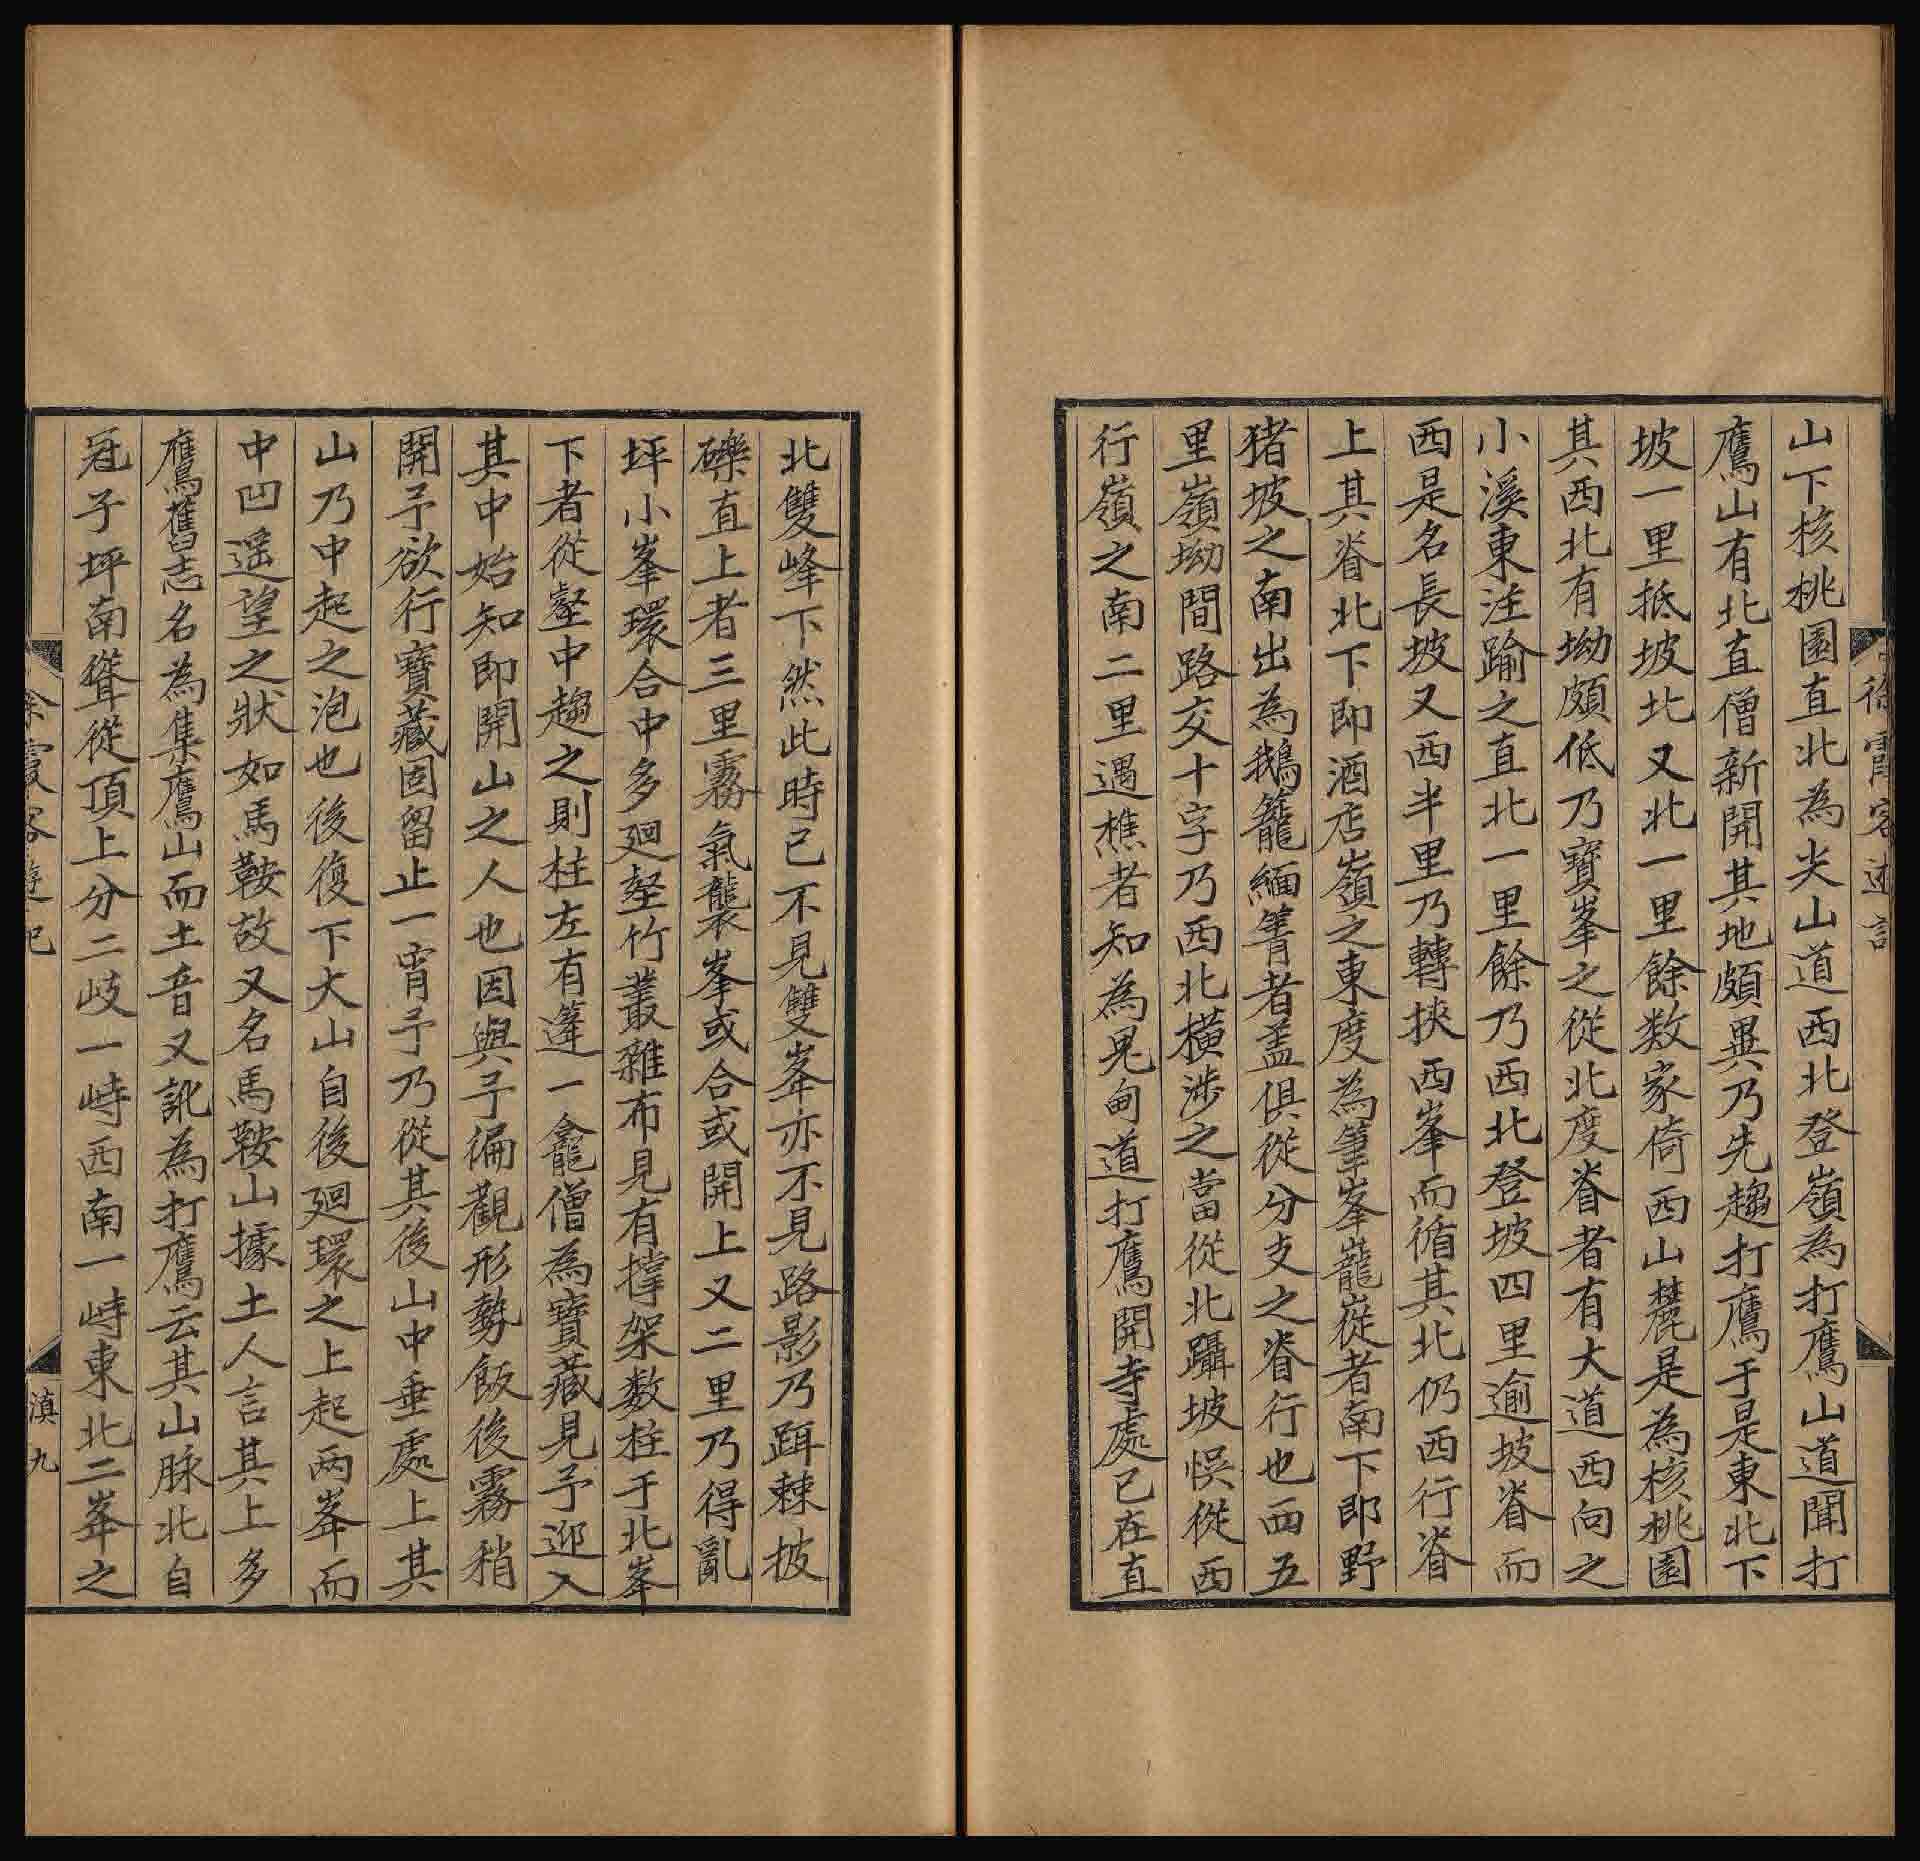 山下核桃園直北為尖山道西北登嶺為打鷹山道聞打
鷹山有北直僧新開其地頗異乃先趨打鷹于是東北下
坡一里抵坡北又北一里餘数家倚西山麓是為核桃園
其西北有坳頗低乃寶峯之從北度脊者有大道西向之
小溪東注踰之直北一里餘乃西北登坡四里逾坡脊而
西是名長坡又西半里乃轉挾西峯而循其北仍西行脊
上其脊北下即酒店嶺之東度為筆峯巃嵸者南下即野
猪坡之南出為鵝籠緬箐者盖俱從分支之脊行也西五
里嶺坳間路交十字乃西北橫渉之當從北躡坡悞從西
行嶺之南二里遇樵者知為鬼甸道打鷹開寺處已在直
北雙峰下然此時已不見雙峯亦不見路影乃躡棘披
礫直上者三里霧氣襲峯或合或開上又二里乃得亂
坪小峯環合中多廻壑竹叢雜布見有撑架数柱于北峯
下者從壑中趨之則柱左有篷一龕僧為寶藏見予迎入
其中始知即開山之人也因與予徧觀形勢飯後霧稍
開予欲行寶藏固留止一宵予乃從其後山中垂處上其
山乃中起之泡也後復下大山自後廻環之上起两峯而
中凹遥望之狀如馬鞍故又名馬鞍山據土人言其上多
鷹舊志名為集鷹山而土音又訛為打鷹云其山脉北自
冠子坪南聳從頂上分二岐一峙西南一峙東北二峯之
徐霞客遊記
滇九